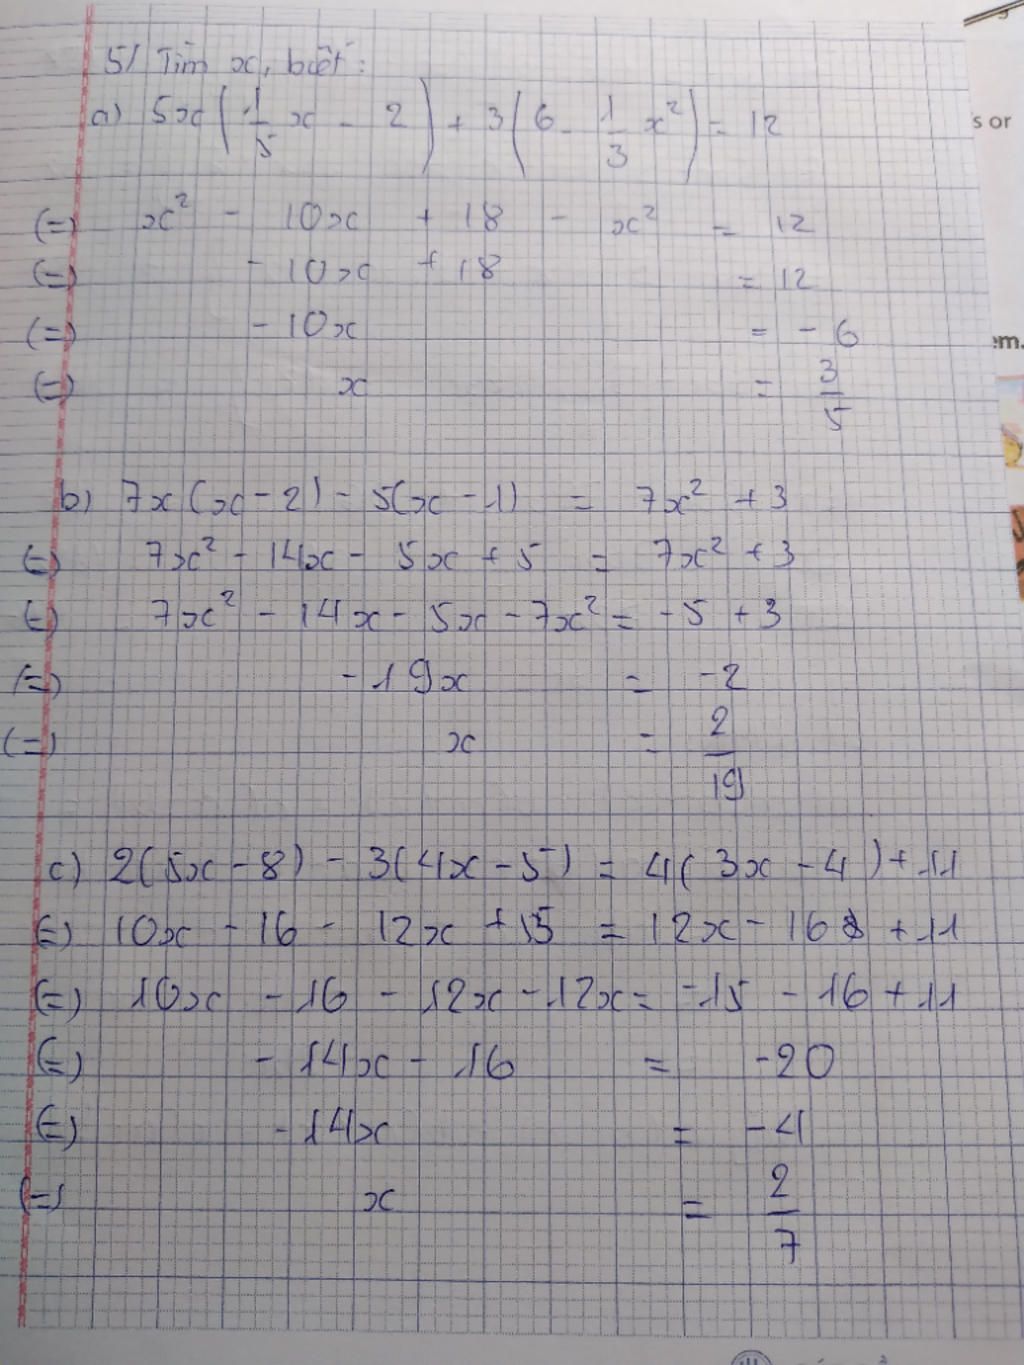 5/ Tìm x, biết:
a) 5x(1/5 x - 2) + 3(6 - 1/3 x²) = 12
(=) x² - 10x + 18 - x² = 12
(=) - 10x + 18 = 12
(=) - 10x = - 6
(=) x = 3/5
b) 7x(x - 2) - 5(x - 1) = 7x² + 3
(=) 7x² - 14x - 5x + 5 = 7x² + 3
(=) 7x² - 14x - 5x - 7x² = -5 + 3
(=) - 19x = -2
(=) x = 2/19
c) 2(5x - 8) - 3(4x - 5) = 4(3x - 4) + 11
(=) 10x - 16 - 12x + 15 = 12x - 16 + 11
(=) 10x - 16 - 12x - 12x = -15 - 16 + 11
(=) - 14x - 16 = -20
(=) - 14x = -4
(=) x = 2/7
s or
em.